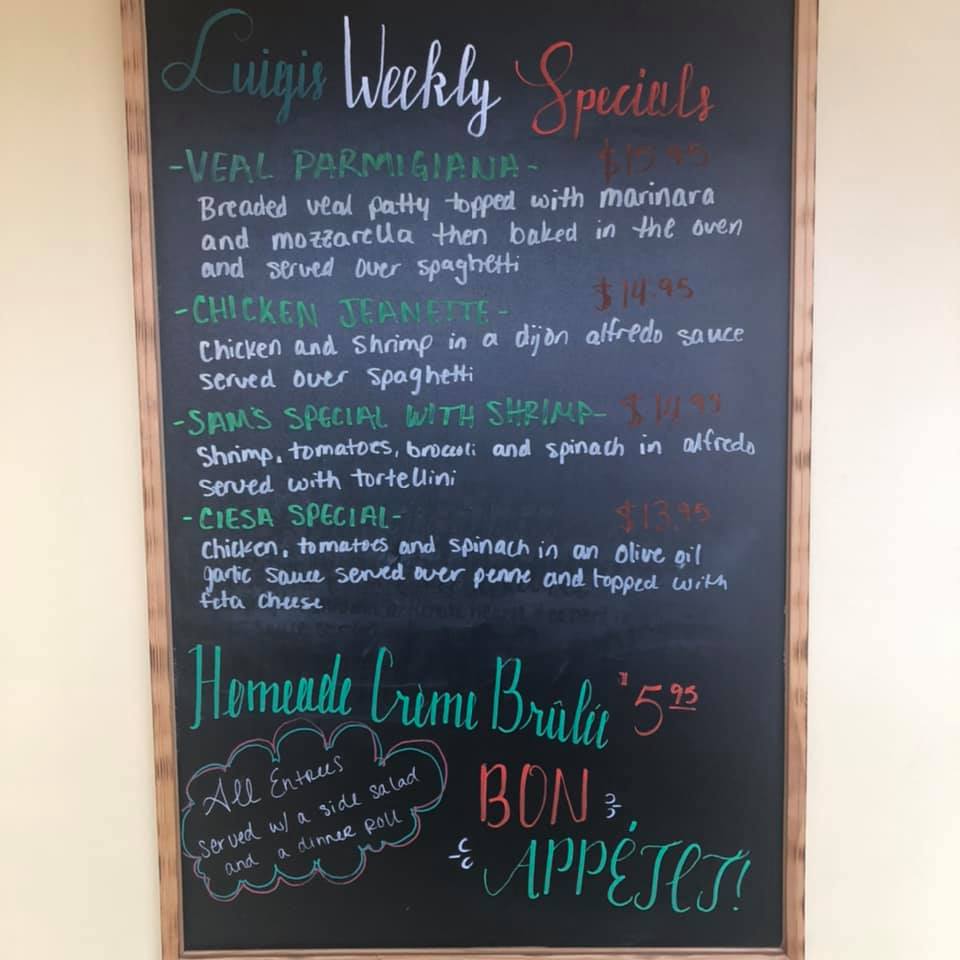 Luigis Weekly Specials
-VEAL PARMIGIANA- $15.95
Breaded veal patty topped with marinara
and mozzarella then baked in the oven
and served over spaghetti
-CHICKEN JEANETTE- $14.95
Chicken and shrimp in a dijon alfredo sauce
served over spaghetti
-SAM'S SPECIAL WITH SHRIMP- $14.95
Shrimp, tomatoes, broccoli and spinach in alfredo
served with tortellini
-CIESA SPECIAL- $13.95
Chicken, tomatoes and spinach in an olive oil
garlic sauce served over penne and topped with
feta cheese
Homeade Crème Brûlée $5.95
All Entrees
served w/ a side salad
and a dinner roll
BON
APPÉTIT!